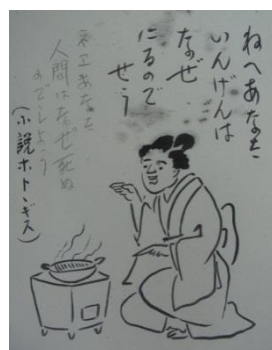 ねへあなた
いんげんは
なぜ
にるので
せう
ネエあなた
人間はなぜ死ぬ
のでしよう
(小説ホトヽギス)